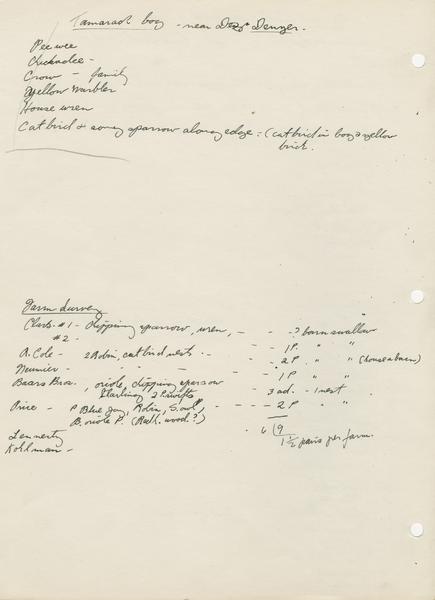 Tamarack bog - near Denzer.
Pee wee
Chickadee -
Crow - family
Yellow Warbler
House wren
Catbird & song sparrow along edge : (catbird in bog & yellow
bird.
Farm Survey
Clark #1 - chipping sparrow, wren, - - - ? barn swallow
#2 - - - 1 P. " "
A. Cole - 2 Robin, catbird nests - - - 2 P. " " (house & barn)
Meunier - - - - - - 1 P " "
Baars Bros. , oriole, chipping sparrow - 3 ad. - 1 nest
Starling 2 P swifts
Price - P Blue Jay, Robin, S. owl, - - - - 2 P "
B. oriole P. (Red h. wood. ?) 6 9
1 1/2 pairs per farm.
Lennerty
Kohlman -